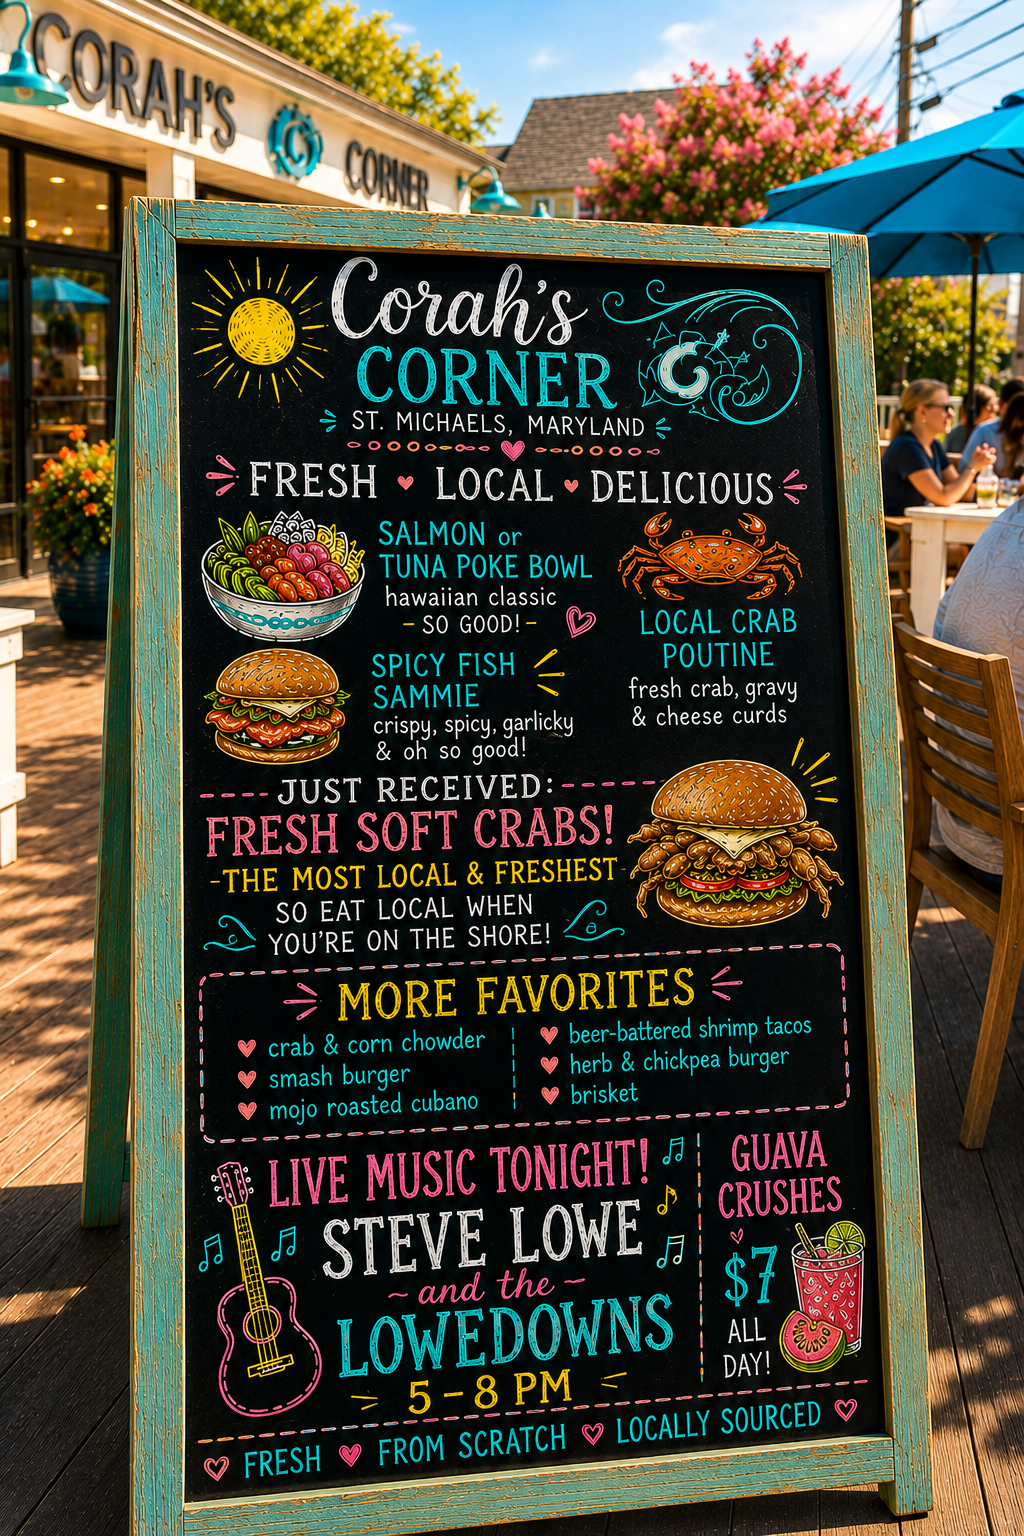 CORAH'S CORNER
Corah's
CORNER
ST. MICHAELS, MARYLAND
FRESH LOCAL DELICIOUS
SALMON or
TUNA POKE BOWL
hawaiian classic
- SO GOOD! -
LOCAL CRAB
POUTINE
fresh crab, gravy
& cheese curds
SPICY FISH
SAMMIE
crispy, spicy, garlicky
& oh so good!
JUST RECEIVED:
FRESH SOFT CRABS!
-THE MOST LOCAL & FRESHEST-
SO EAT LOCAL WHEN
YOU'RE ON THE SHORE!
MORE FAVORITES
crab & corn chowder
smash burger
mojo roasted cubano
beer-battered shrimp tacos
herb & chickpea burger
brisket
LIVE MUSIC TONIGHT!
STEVE LOWE
~ and the ~
LOWEDOWNS
5-8 PM
GUAVA
CRUSHES
$7
ALL
DAY!
FRESH FROM SCRATCH LOCALLY SOURCED